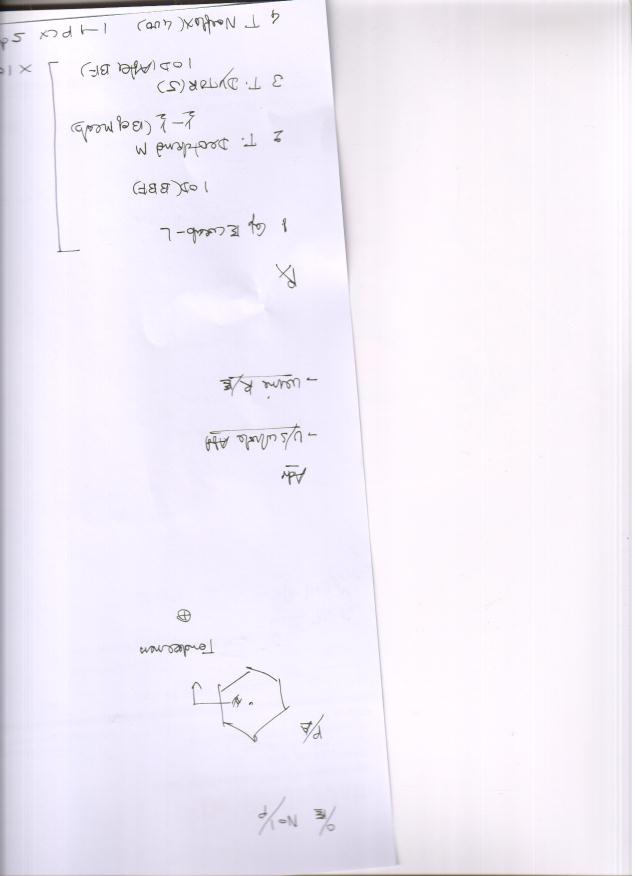 O/E No I/P
P/A
Tenderness
⊕
Adv
- U/S whole Abd
- Urine R/E
Rx
1 Cap
1 OD (BBF)
2 T. M
½-½ (Bef Meals)
3 T. DYTOR (5)
1 OD (After BF) x 10
4 T Norflox (400) 1-1 PC x 5d